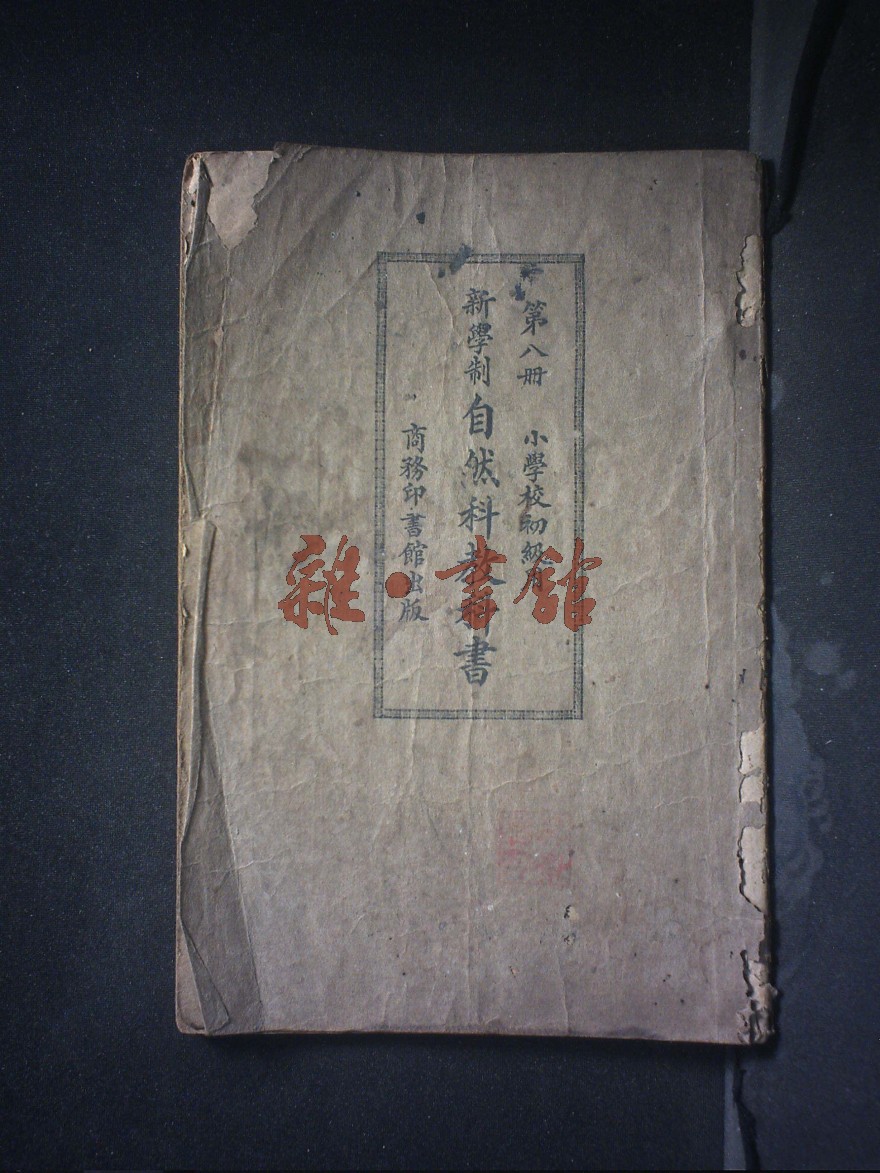 第八册 小學校初級用
新學制自然科教科書
商務印書館出版
雜·書館